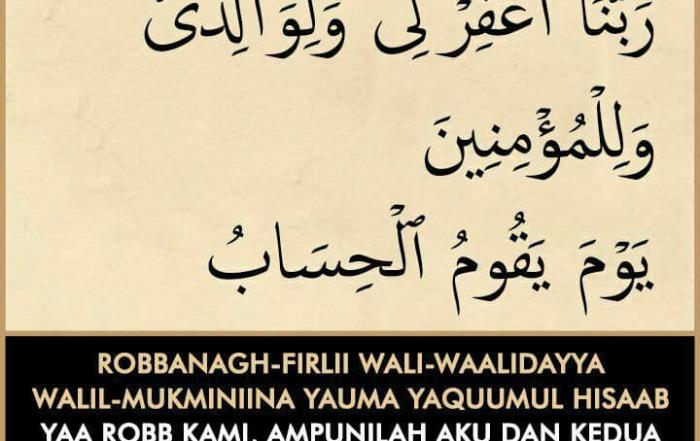 رَبَّنَا ٱغْفِرْ لِى وَلِوَٰلِدَىَّ
وَلِلْمُؤْمِنِينَ
يَوْمَ يَقُومُ ٱلْحِسَابُ
ROBBANAGH-FIRLII WALI-WAALIDAYYA
WALIL-MUKMINIINA YAUMA YAQUUMUL HISAAB
YAA ROBB KAMI, AMPUNILAH AKU DAN KEDUA